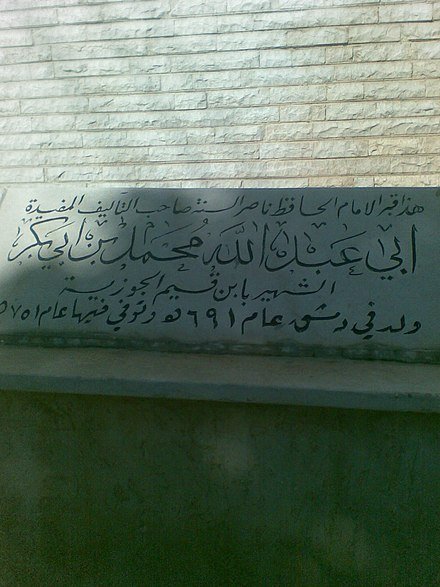 هذا قبر الامام الحافظ ناصر السنة صاحب التآليف المفيدة
أبي عبد الله محمد بن أبي بكر
الشهير بابن قسيم الجوزية
ولد في دمشق عام ٦٩١ه وتوفي فيها عام ٧٥١ه